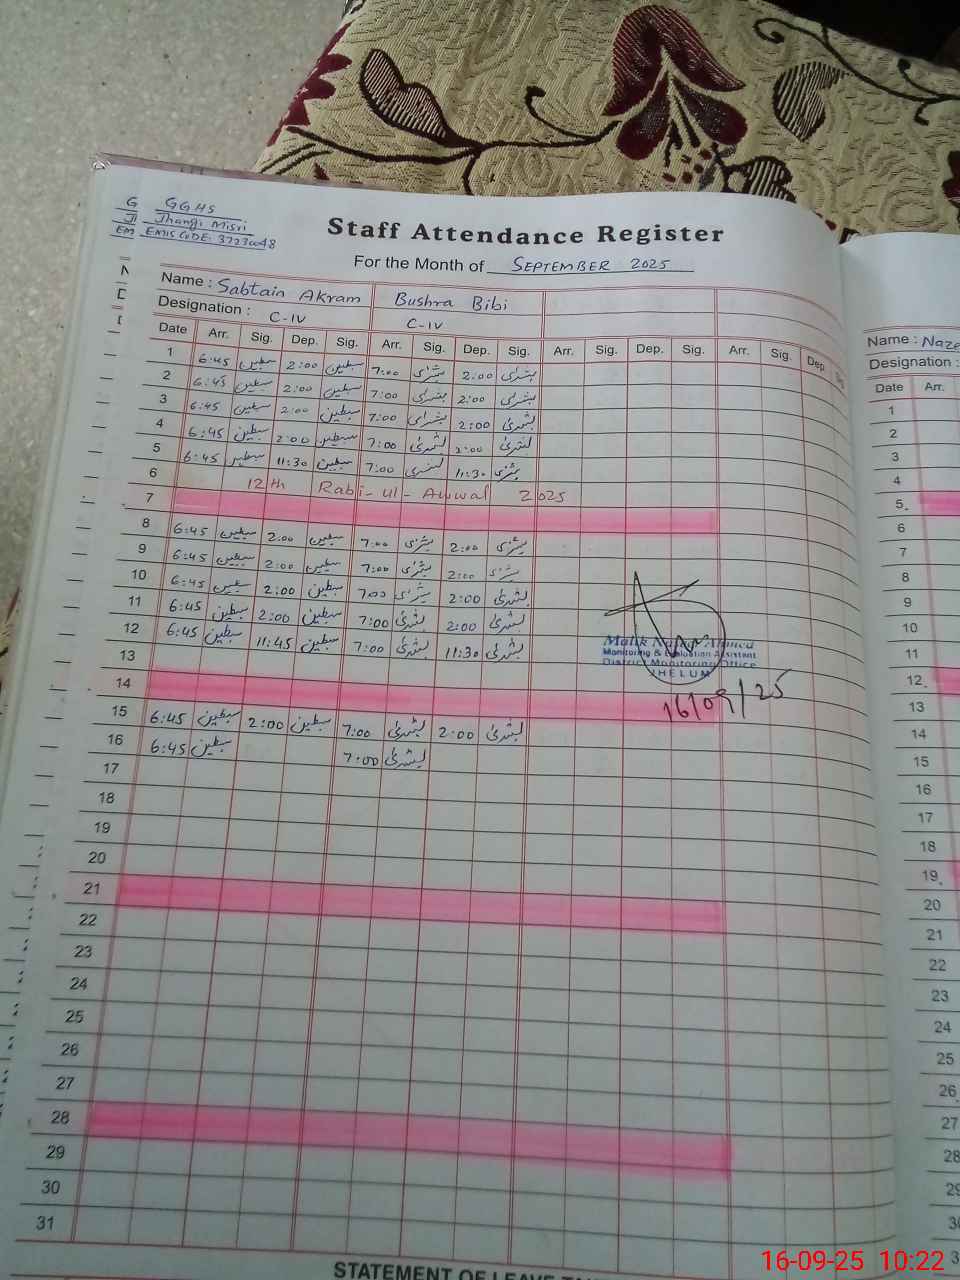 GGHS
Jhangi Misri
EMIS CODE: 37230048
Staff Attendance Register
For the Month of SEPTEMBER 2025
Name : Sabtain Akram Bushra Bibi
Designation : C-IV C-IV
Date Arr. Sig. Dep. Sig. Arr. Sig. Dep. Sig. Arr. Sig. Dep. Sig. Arr. Sig. Dep. Sig.
1 6:45 سبطین 2:00 سبطین 7:00 بشرٰی 2:00 بشرٰی
2 6:45 سبطین 2:00 سبطین 7:00 بشرٰی 2:00 بشرٰی
3 6:45 سبطین 2:00 سبطین 7:00 بشرٰی 2:00 بشرٰی
4 6:45 سبطین 2:00 سبطین 7:00 بشرٰی 2:00 بشرٰی
5 6:45 سبطین 11:30 سبطین 7:00 بشرٰی 11:30 بشرٰی
6 12th Rabi-ul-Awwal 2025
7
8 6:45 سبطین 2:00 سبطین 7:00 بشرٰی 2:00 بشرٰی
9 6:45 سبطین 2:00 سبطین 7:00 بشرٰی 2:00 بشرٰی
10 6:45 سبطین 2:00 سبطین 7:00 بشرٰی 2:00 بشرٰی
11 6:45 سبطین 2:00 سبطین 7:00 بشرٰی 2:00 بشرٰی
12 6:45 سبطین 11:45 سبطین 7:00 بشرٰی 11:30 بشرٰی
13
14
15 6:45 سبطین 2:00 سبطین 7:00 بشرٰی 2:00 بشرٰی
16 6:45 سبطین 7:00 بشرٰی
17
18
19
20
21
22
23
24
25
26
27
28
29
30
31
Malik Ahmed
Monitoring & Evaluation Assistant
District Monitoring Office
JHELUM
16/09/25
STATEMENT OF LEAVE
Name :
Designation :
Date Arr.
1
2
3
4
5
6
7
8
9
10
11
12
13
14
15
16
17
18
19
20
21
22
23
24
25
26
27
28
16-09-25 10:22